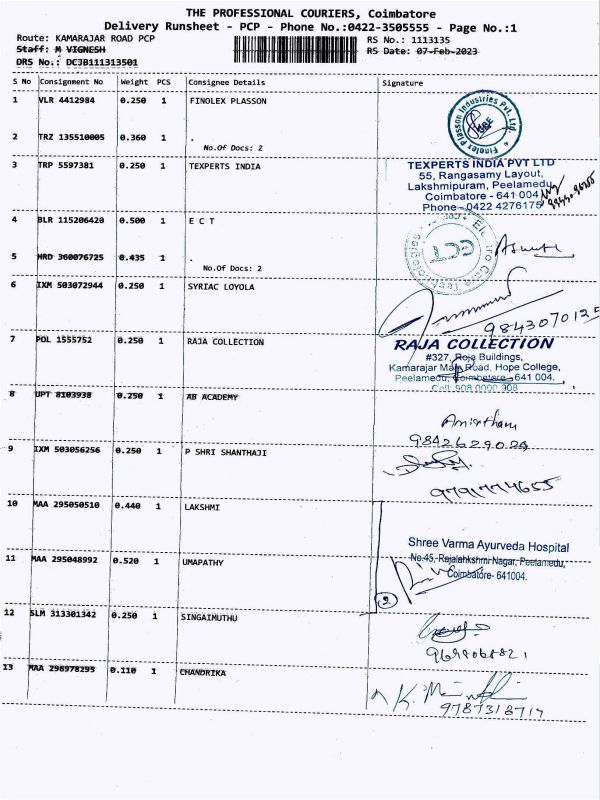 THE PROFESSIONAL COURIERS, Coimbatore
Delivery Runsheet - PCP - Phone No.:0422-3505555 - Page No.:1
Route: KAMARAJAR ROAD PCP RS No.: 1113135
Staff: M VIGNESH RS Date: 07-Feb-2023
DRS No.: DCJB111313501
S No Consignment No Weight PCS Consignee Details Signature
1 VLR 4412984 0.250 1 FINOLEX PLASSON
Finolex Plasson Industries Pvt. Ltd.
2 TRZ 135510005 0.360 1 .
No.Of Docs: 2
3 TRP 5597381 0.250 1 TEXPERTS INDIA
TEXPERTS INDIA PVT LTD
55, Rangasamy Layout,
Lakshmipuram, Peelamedu,
Coimbatore - 641 004
Phone - 0422 4276175
4 BLR 115206420 0.500 1 E C T
5 NRD 360076725 0.435 1 .
No.Of Docs: 2
6 IXM 503072944 0.250 1 SYRIAC LOYOLA
9843070125
7 POL 1555752 0.250 1 RAJA COLLECTION
RAJA COLLECTION
#327, Raja Buildings,
Kamarajar Main Road, Hope College,
Peelamedu, Coimbatore - 641 004.
Cell: 908 0000 908
8 UPT 8103938 0.250 1 AB ACADEMY
9842629029
9 IXM 503056256 0.250 1 P SHRI SHANTHAJI
9791774655
10 MAA 295050510 0.440 1 LAKSHMI
Shree Varma Ayurveda Hospital
No.45, Rajalahkshmi Nagar, Peelamedu,
Coimbatore- 641004.
11 MAA 295048992 0.520 1 UMAPATHY
2
12 SLM 313301342 0.250 1 SINGAIMUTHU
13 MAA 296978295 0.110 1 CHANDRIKA
9787318717